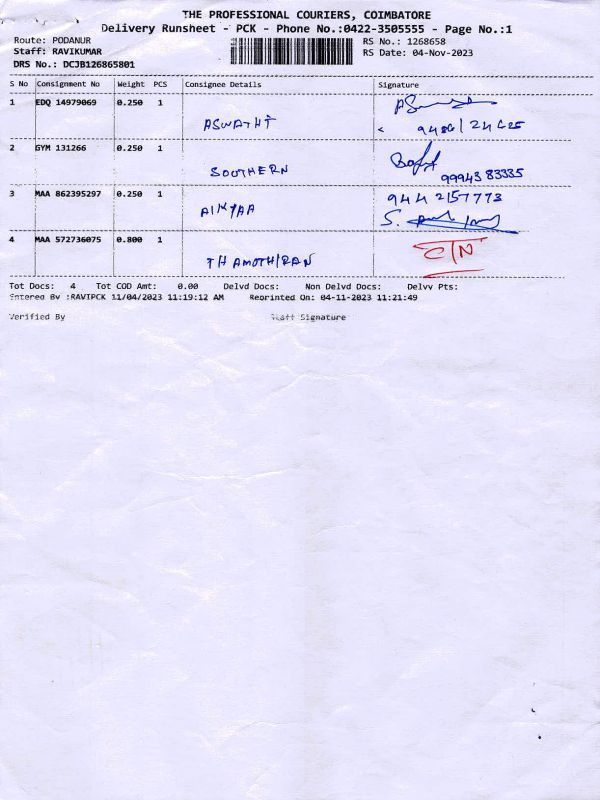 THE PROFESSIONAL COURIERS, COIMBATORE
Delivery Runsheet - PCK - Phone No.:0422-3505555 - Page No.:1
Route: PODANUR
Staff: RAVIKUMAR
DRS No.: DCJB126865801
RS No.: 1268658
RS Date: 04-Nov-2023
S No Consignment No Weight PCS Consignee Details Signature
1 EDQ 14979069 0.250 1
ASWATHI
2 GYM 131266 0.250 1
SOUTHERN
99943 83335
3 MAA 862395297 0.250 1
944 2157773
4 MAA 572736075 0.800 1
THAMOTHIRAN
Tot Docs: 4 Tot COD Amt: 0.00 Delvd Docs: Non Delvd Docs: Delvv Pts:
Entered By :RAVIPCK 11/04/2023 11:19:12 AM Reprinted On: 04-11-2023 11:21:49
Verified By Staff Signature